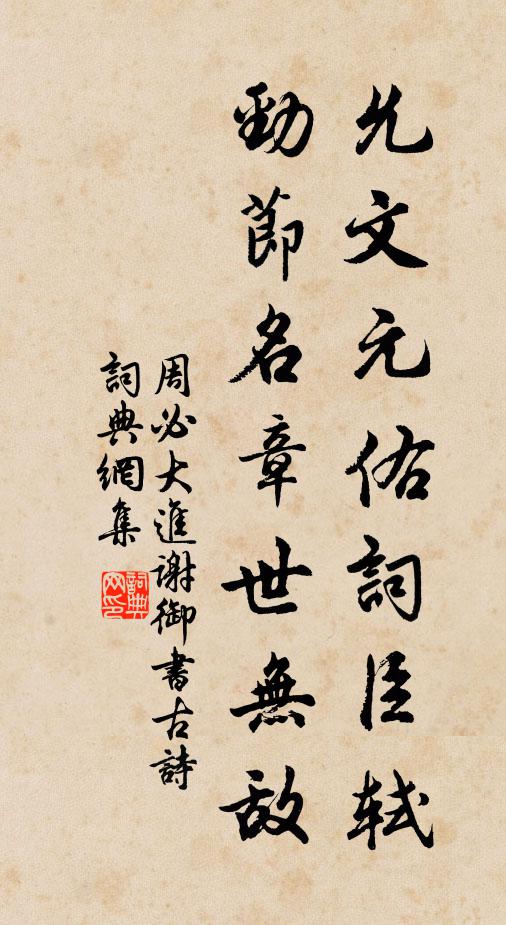 允文元佑詞臣軾
勁節名章世無敵
周必大進謝御書古詩
詞典網集
詞典网印